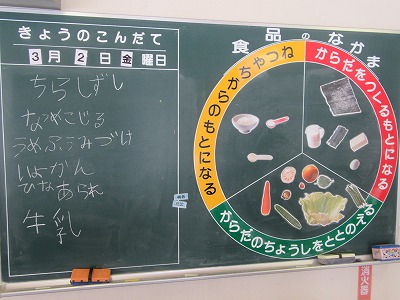 きょうのこんだて
3月2日金曜日
ちらしずし
なめこじる
うめふうみづけ
いよかん
ひなあられ
牛乳
食品のなかま
ちからやねつのもとになる
からだをつくるもとになる
からだのちょうしをととのえる
消火器